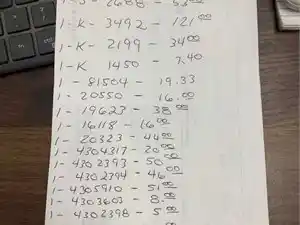 2688 - 53 00
1 - K - 3492 - 121 00
1 - K - 2199 - 34 00
1 - K 1450 - 7.40
1 - 81504 - 19.33
1 - 20550 - 16.00
1 - 19623 - 38 00
1 - 16118 - 16 00
1 - 20323 - 44 00
1 - 4304317 - 20 00
1 - 4302393 - 50 00
1 - 4302794 - 46 00
1 - 4305910 - 51 00
1 - 4303603 - 8.00
1 - 4302398 - 5 00